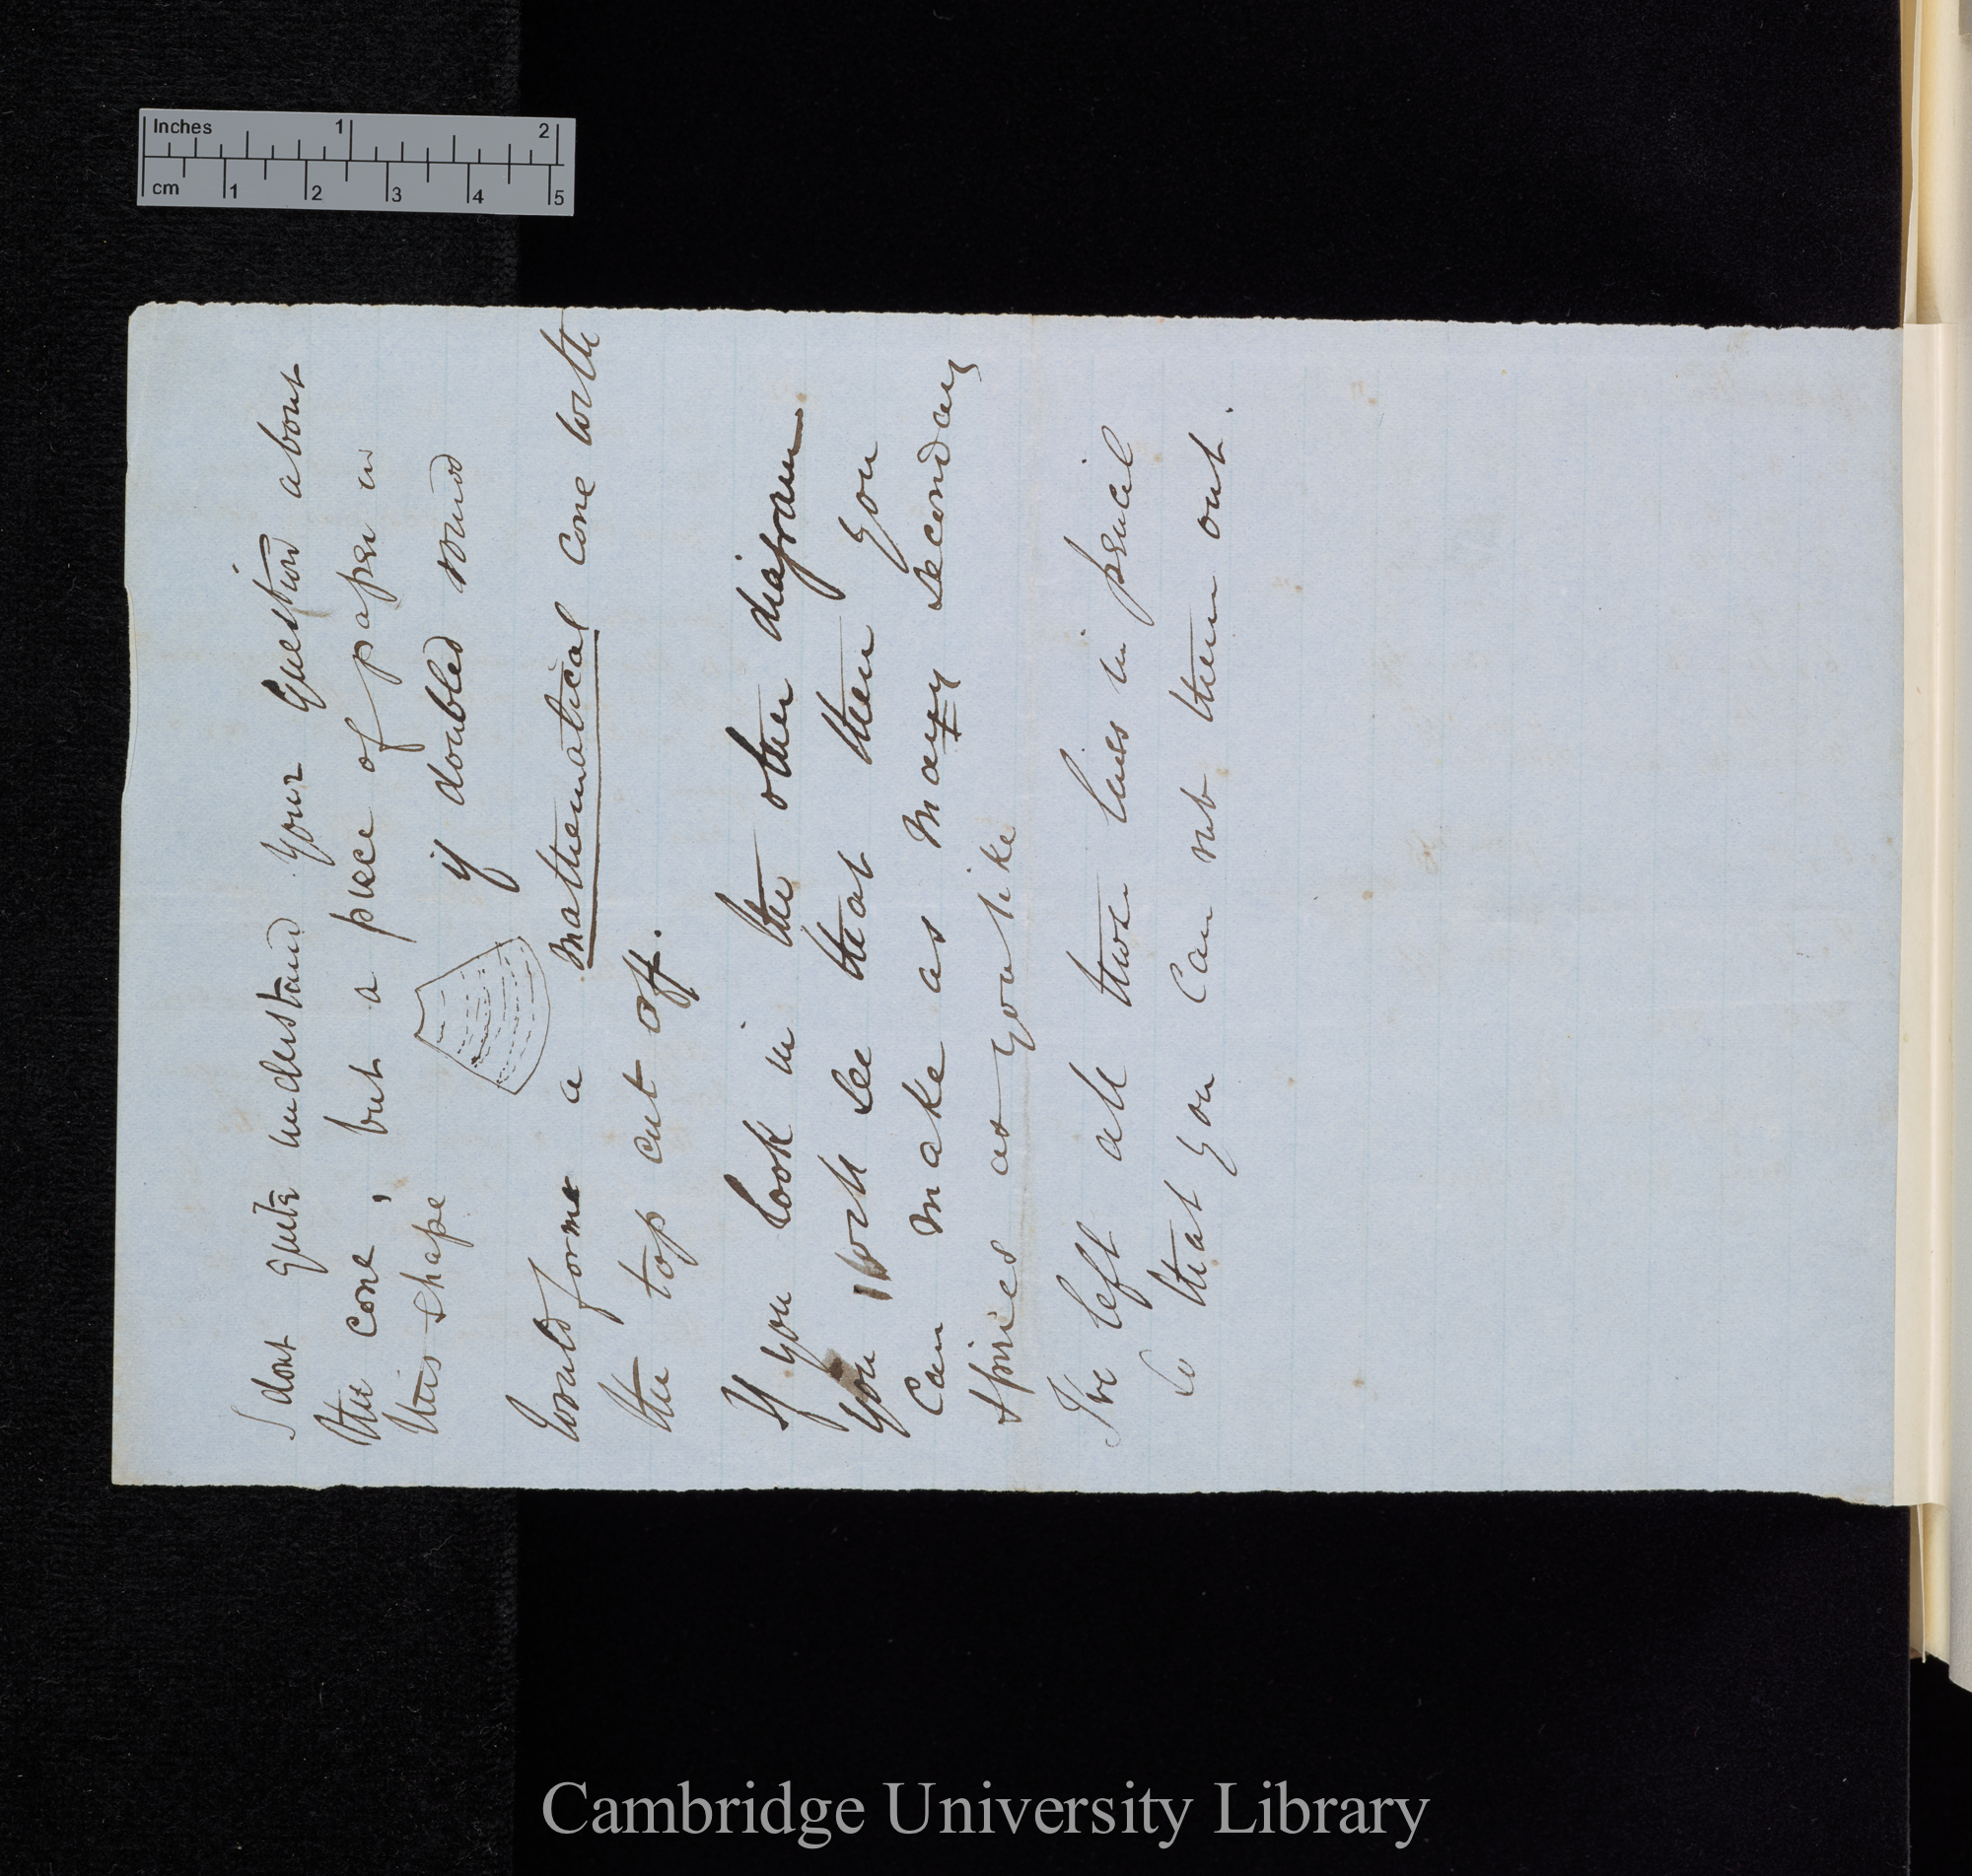 Inches 1 2
cm 1 2 3 4 5
I dont quite understand your question about
the cone, but a piece of paper in
this shape if doubled round
would forme a mathematical cone with
the top cut off.
If you look in the other diagram
you will see that then you
can make as many secondary
spires as you like
I've left all those lines in pencil
so that you can rub them out.
Cambridge University Library